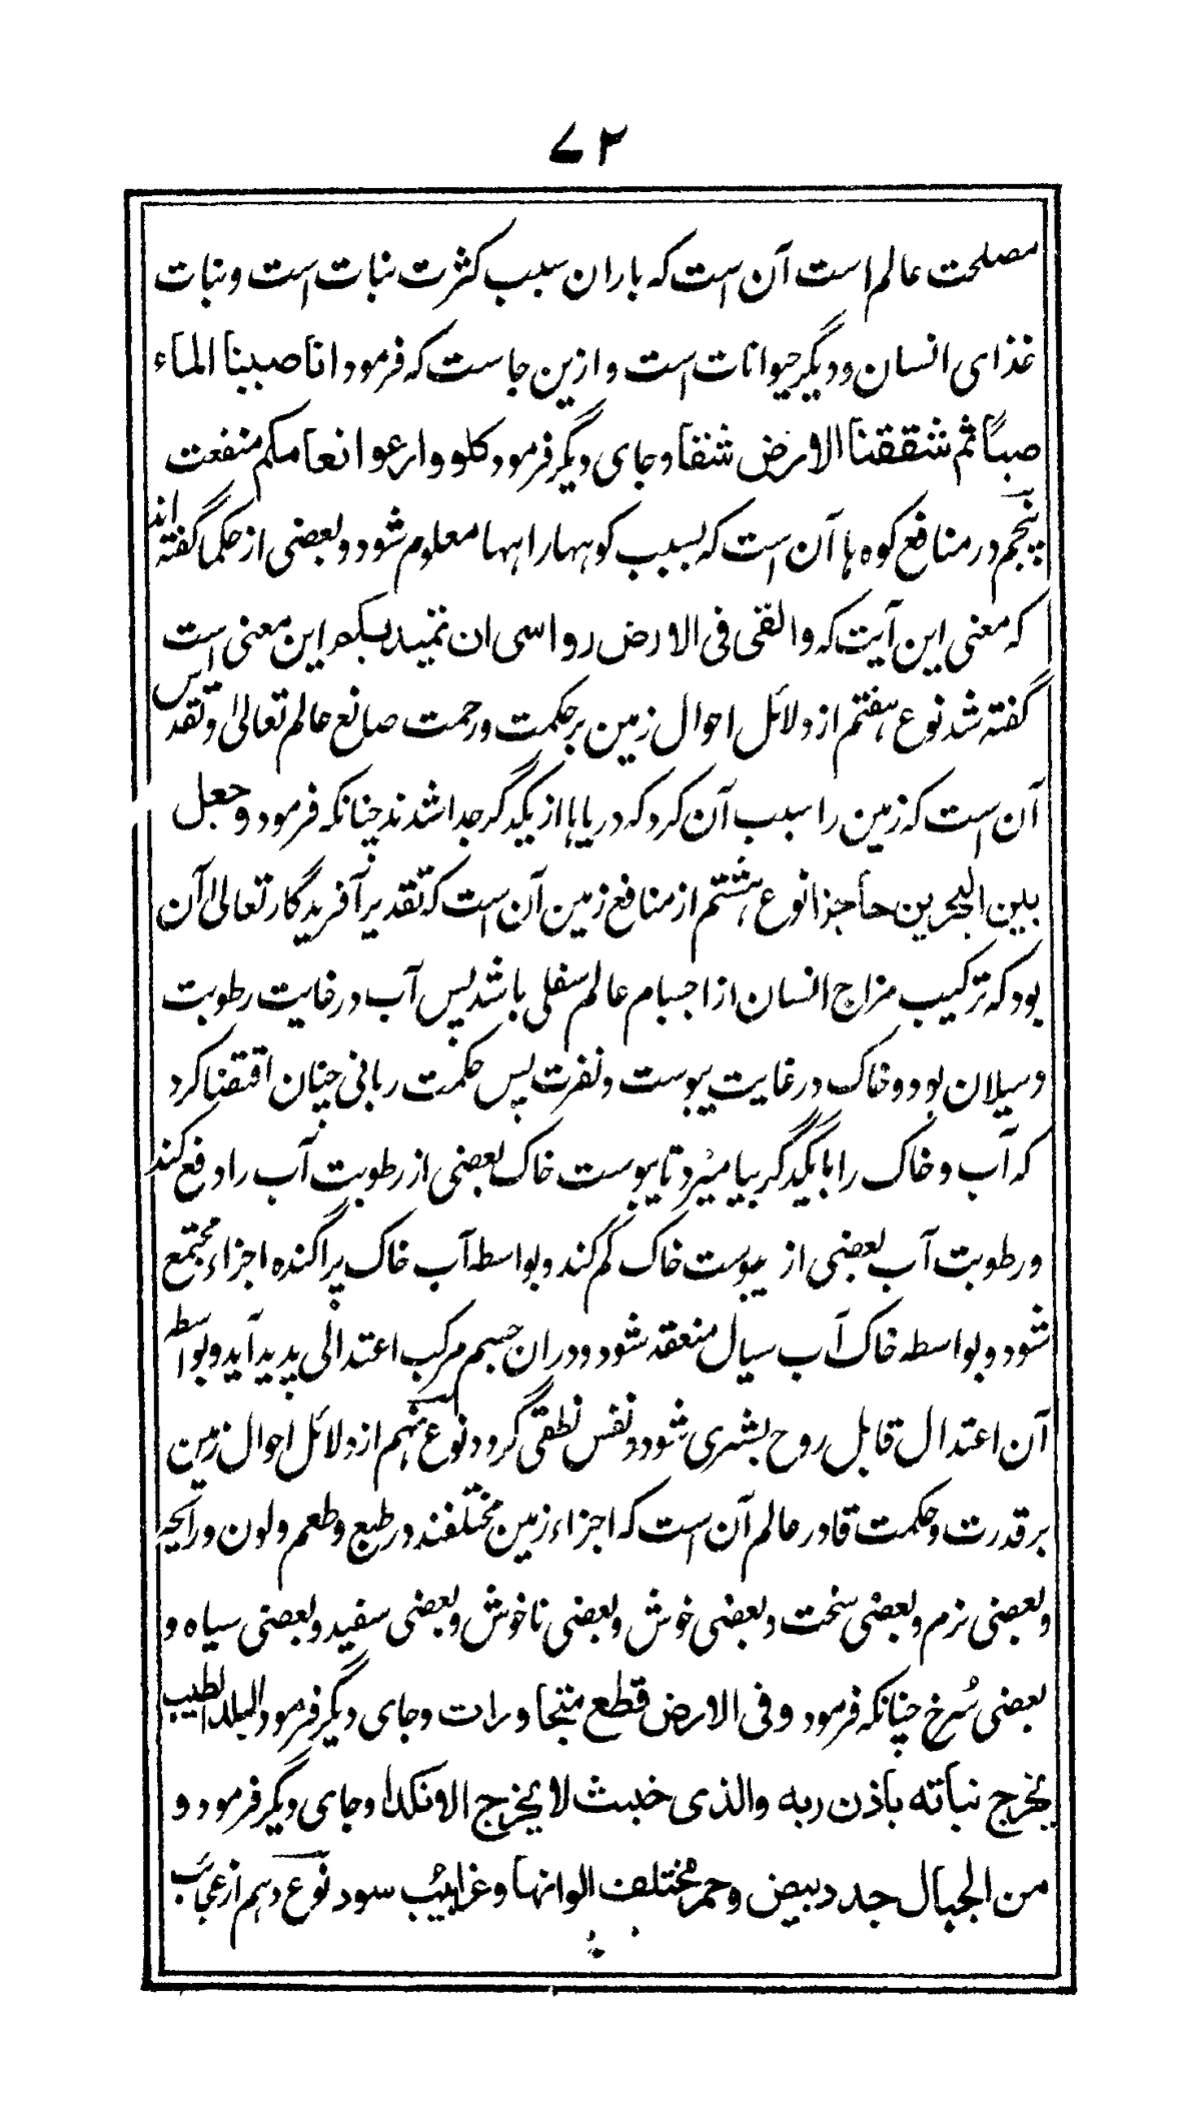 ۷۲
مصلحت عالم است آن است که باران سبب کثرت نبات است و نبات
غذای انسان و دیگر حیوانات است و ازین جاست که فرمود انا صببنا الماء
صباً ثم شققنا الارض شقا و جای دیگر فرمود کلوا وارعوا انعامکم منفعت
پنجم در منافع کوه ها آن است که بسبب کوهها راهها معلوم شود و بعضی از حکما گفته اند
که معنی این آیت که والقی فی الارض رواسی ان تمید بکم این معنی است
گفته شد نوع هفتم از دلائل احوال زمین بر حکمت و رحمت صانع عالم تعالی و تقدس
آن است که زمین را سبب آن کرد که دریاها از یکدگر جدا شدند چنانکه فرمود وجعل
بین البحرین حاجزا نوع هشتم از منافع زمین آن است که تقدیر آفریدگار تعالی آن
بود که ترکیب مزاج انسان از اجسام عالم سفلی باشد پس آب در غایت رطوبت
و سیلان بود و خاک در غایت یبوست و نفرت پس حکمت ربانی چنان اقتضا کرد
که آب و خاک را با یکدگر بیامیزد تا یبوست خاک بعضی از رطوبت آب را دفع کند
و رطوبت آب بعضی از یبوست خاک کم کند و بواسطه آب خاک پراگنده اجزاء مجتمع
شود و بواسطه خاک آب سیال منعقد شود و دران جسم مرکب اعتدالی پدید آید و بواسطه
آن اعتدال قابل روح بشری شود و نفس نطقی گردد نوع نهم از دلائل احوال زمین
بر قدرت و حکمت قادر عالم آن است که اجزاء زمین مختلفند در طبع و طعم و لون و رائحه
و بعضی نرم و بعضی سخت و بعضی خوش و بعضی ناخوش و بعضی سفید و بعضی سیاه و
بعضی سُرخ چنانکه فرمود و فی الارض قطع متجاورات و جای دیگر فرمود البلد الطیب
یخرج نباته باذن ربه والذی خبث لا یخرج الا نکدا و جای دیگر فرمود و
من الجبال جدد بیض وحمر مختلف الوانها وغرابیب سود نوع دہم از عجائب